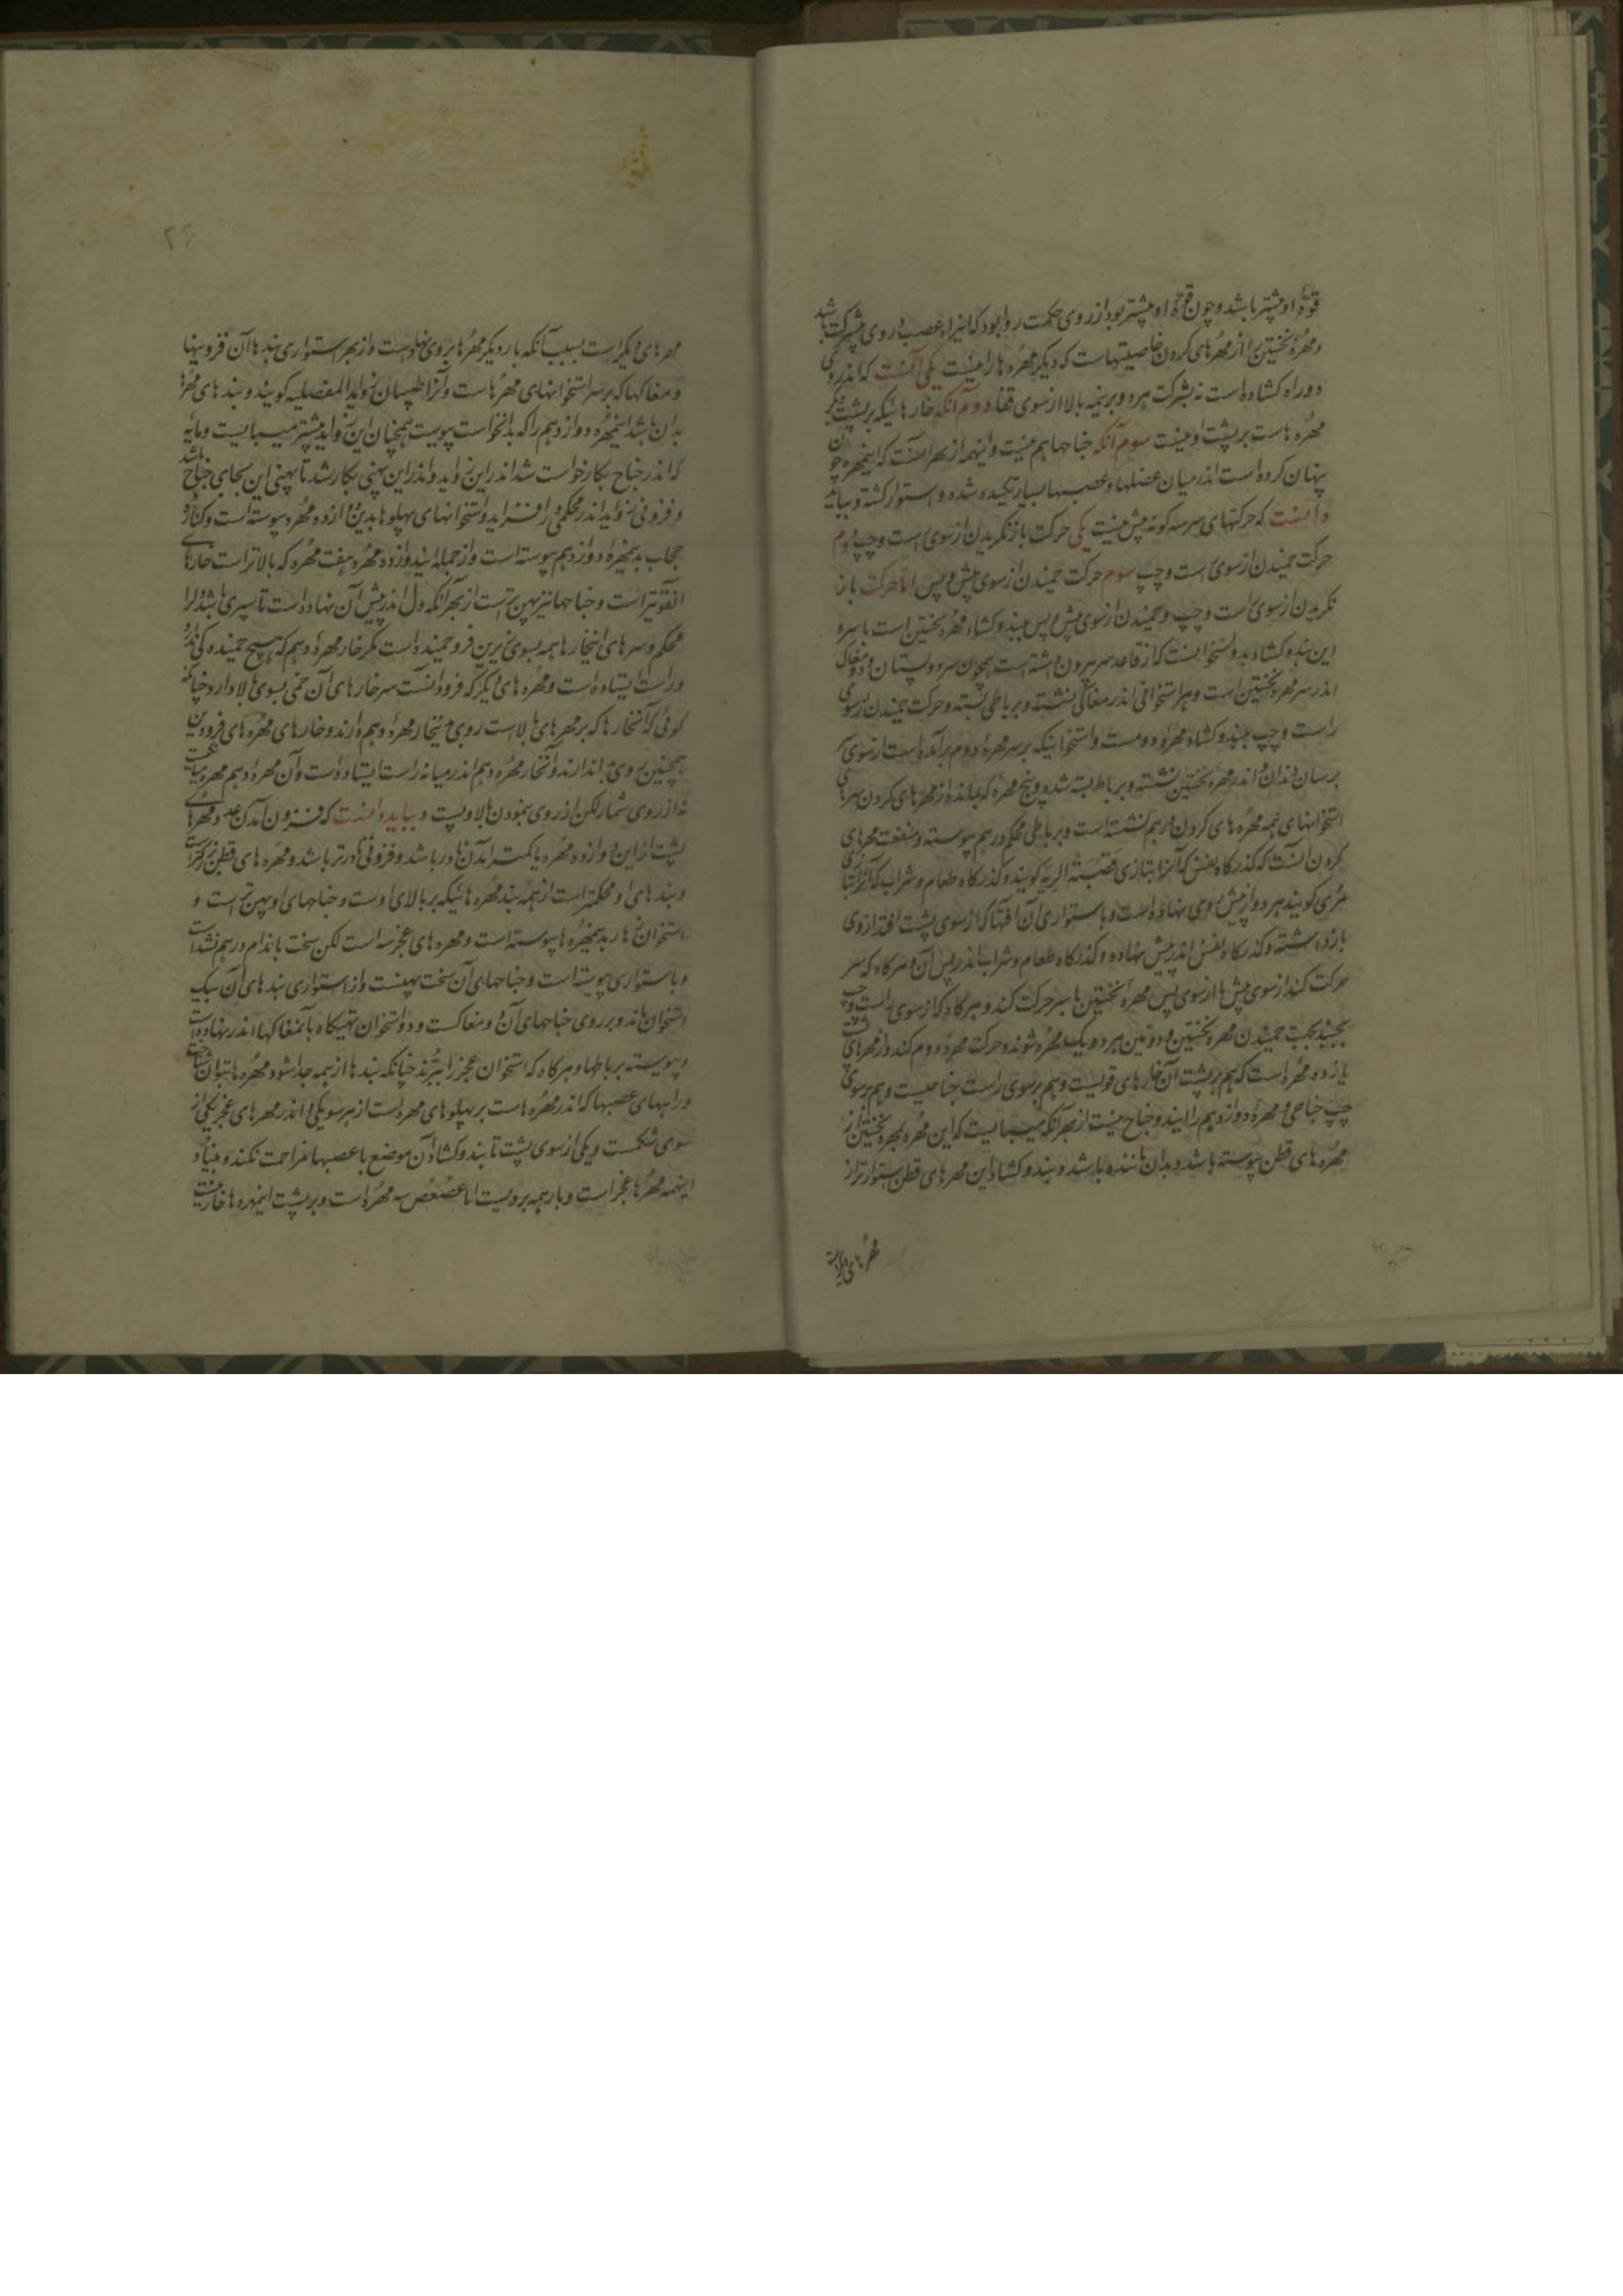 قوة او بیشتر باشد و چون قوة او بیشتر بود از روی حکمت روا بود که اینراه عصب از وی بشرکت باشد
و مهرهٔ نخستین را از مهرهای کردن خاصیتهاست که دیگر مهره ها را نیست یکی آنست که اندر وی
دو راه کشاده است نه بشرکت هر دو بر نیمه بالا از سوی قفا دوم آنکه خارهائیکه بر پشت دیگر
مهره هاست بر پشت او نیست سوم آنکه جناحها هم نیست و اینهمه از بهر انست که اینمهره چون
پنهان کرده است اندر میان عضلها و عصبها بسیار تکیده شده و استوار کشته و بباید
دانست که حرکتهای سر سه کونه بیش نیست یکی حرکت باز نکریدن از سوی راست و چپ دوم
حرکت خمیدن از سوی راست و چپ سوم حرکت خمیدن از سوی پیش و پس اما حرکت باز
نکریدن از سوی راست و چپ و خمیدن از سوی پیش و پس ببند و کشاد مهره نخستین است با سر و
این بند و کشاد بدو استخوانست که از قاعده سر بیرون داشته است همچون سر دو پستان و دو مغاک
اندر سر مهره نخستین است و هر استخوانی اندر مغاکی نشسته و بر باطی بسته و حرکت خمیدن از سوی
راست و چپ ببند و کشاد مهرهٔ دومست و استخوانیکه بر سر مهرهٔ دوم برآمده است از سوی
برسان دندان و اندر مهره نخستین نشسته و برباط بسته شده و پنج مهره که بمانده از مهرهای کردن سرهای
استخوانهای همه مهره های کردن اندر هم نشسته است و برباطی محکم در هم پیوسته و منفعت مهرهای
کردن آنست که کذرکاه نفس که آنرا بتازی قصبة الریه کویند و کذرکاه طعام و شراب که آنرا بتازی
مری کویند هر دو از پیش وی نهاده است و باستواری آن آفتها که از سوی پشت افتد از وی
بازداشته و کذرکاه نفس اندر پیش نهاده و کذرکاه طعام و شراب اندر پس آن و هرکاه که سر
حرکت کند از سوی پیش یا از سوی پس مهره نخستین با سر حرکت کند و هرکاه که از سوی راست و چپ
بجنبد بجنب خمیدن مهره نخستین و دومین هر دو یک مهره شوند و حرکت مهرهٔ دوم کند و از مهرهای پشت
یازده مهره است که هم بر پشت آن خارهای قویست و هم بر سوی راست جناحیست و هم بر سوی
چپ جناحی و مهرهٔ دوازدهم را ایند و جناح نیست از بهر آنکه میبایست که این مهره بمهره نخستین از
مهره های قطن پیوسته باشد و بدان ماننده باشد و بند و کشاد این مهرهای قطن استوارتر از
مهرهای دیگراست
۲۶
مهرهای دیگر است بسبب آنکه بار دیگر مهرها بر وی نهاده است و از بهر استواری بندها آن فزونیها
و مغاکها که بر سر استخوانهای مهرهاست و آنرا طبیبان زواید المفصلیه کویند و بندهای مهرها
بدان باشد اینمهره دوازدهم را که بدانخواست پیوست همچنان این زواید بیشتر میبایست و مایه
که اندر جناح بکار خواست شد اندر این زواید و اندر این پهنی بکار شد تا پهنی این بجای جناح باشد
و فزونی زواید اندر محکمی او افزاید و استخوانهای پهلوها بدین دوازده مهره پیوسته است و کناره
حجاب بدینمهرهٔ دوازدهم پیوسته است و از جمله ایندوازده مهره هفت مهره که بالاتر است خارهای
آن قویتر است و جناحها نیز پهن تر است از بهر آنکه دل اندر پیش آن نهاده است تا سپری باشد دل را
محکم و سرهای اینخارها همه بسوی زیرین فرو خمیده است مکر خار مهرهٔ دهم که هیچ خمیدکی ندارد
و راست ایستاده است و مهره های دیگر که فرود آنست سر خارهای آن خمی بسوی بالا دارد چنانکه
کوئی که آنخارها که بر مهرهای بالاست روی بدینخار مهرهٔ دهم دارند و خارهای مهره های فرودین
همچنین روی بدان دارند و آنخار مهره دهم اندر میانه راست ایستاده است و آن مهرهٔ دهم مهره میانست
نه از روی شمار لکن از روی پیمودن بالا و پست و بباید دانست که فزون آمدن عدد مهرهای
پشت از این دوازده مهره یا کمتر آمدن نادر باشد و فزونی نادرتر باشد و مهره های قطن بزرکتر است
و بندهای او محکمتر است از همه بند مهره هائیکه بر بالای اوست و جناحهای او پهن تر است و
استخوان زهار بدینمهره ها پیوسته است و مهره های عجز سه است لکن سخت باندام در هم نشسته است
و باستواری پیوسته است و جناحهای آن سخت پهنست و از استواری بندهای آن بیک
استخوان ماند و بر روی جناحهای آن دو مغاکست و دو استخوان تهیکاه بآنمغاکها اندر نهاده است
و پیوسته برباطها و هرکاه که استخوان عجز را بپزند چنانکه بندها از همه جدا شود مهره ها بتوان شناخت
و راههای عصبها که اندر مهره هاست بر پهلوهای مهره است از هر سو یکی و اندر مهرهای عجز یکی از
سوی شکمست و یکی از سوی پشت تا بند و کشاد آن موضع با عصبها مزاحمت نکند و بنیاد
اینهمه مهرها عجز است و بار همه برویست اما عصعص سه مهره است و بر پشت اینمهره ها خار نیست